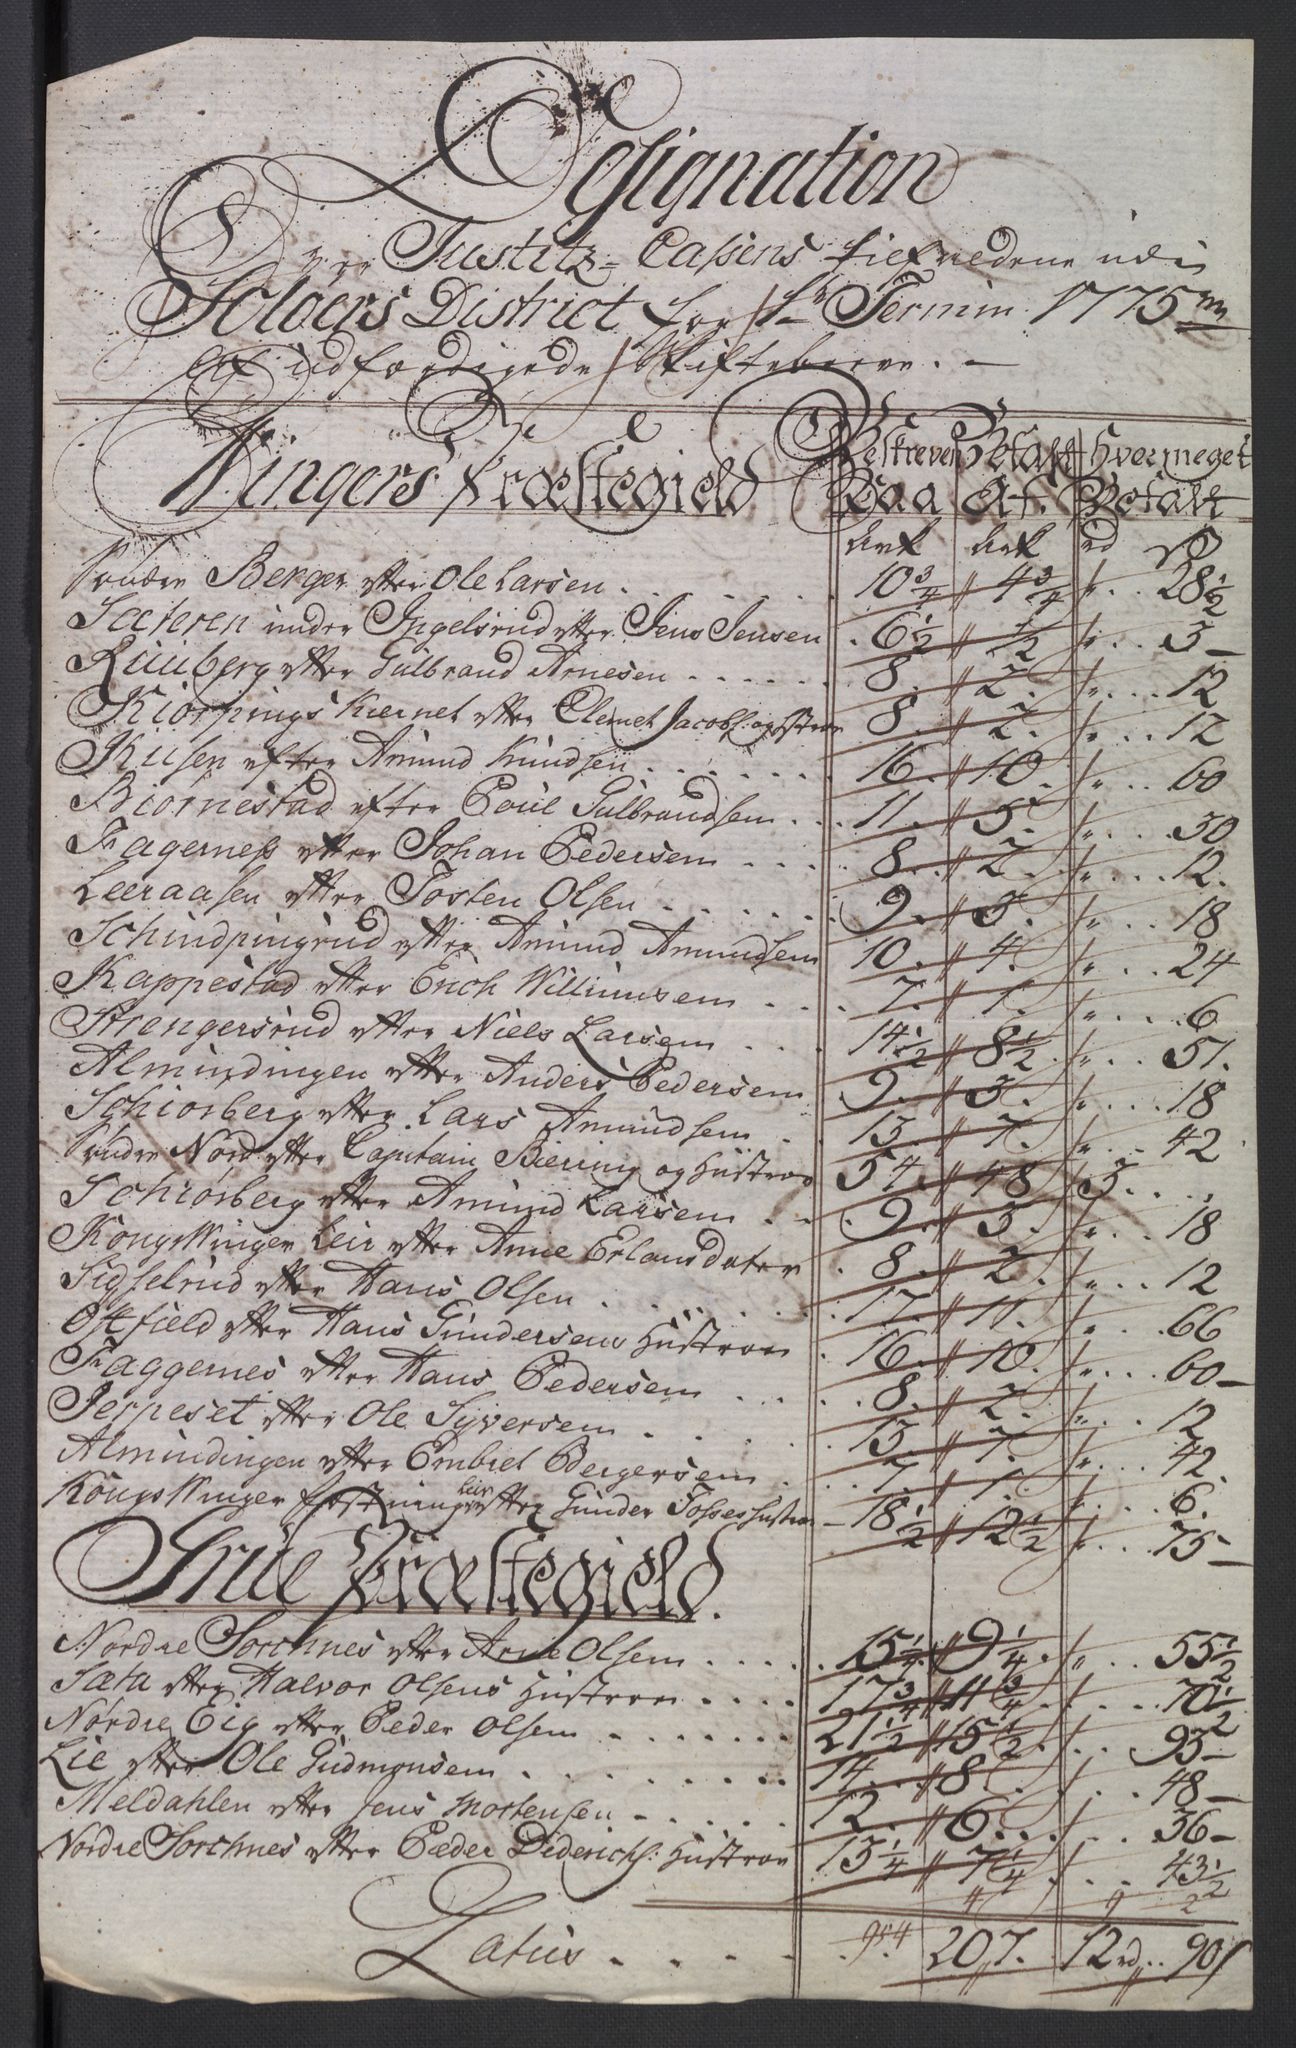 Designation
Over Justitz-Cassens tilfældene udi
Soloers District for 1te Termin 1775
af udfærdigede Skiftebreve. —
Wingers Præstegield Beskreven Betalt Hvormeget
Paa Af. Betalt
Ark Ark rd ß
Søndre Berger efter Ole Larsen . . . 10 3/4 4 3/4 " 28 1/2
Sæteren under Ingelsrud efter Jens Jensen . 6 1/2 1/2 " 3 —
Ruuberg efter Gulbrand Arnesen . . . 8. 2. " 12
Kiørpings Kiernet efter Clemet Jacobs: og Hustrue 8. 2. " 12
Kusen efter Amund Knudsen . . . 16. 10. " 60
Biørnestad efter Poul Gulbrandsen . . 11. 5. " 30
Fagerness efter Johan Pedersen . . . 8. 2. " 12.
Leeraasen efter Tosten Olsen . . . 9. 3. " 18
Schindpingrud efter Amund Amundsen 10. 4. " 24
Kappestad efter Erich Williumsen . . . 7. 1. " 6
Strengersrud efter Niels Larsen . . . 14 1/2 8 1/2 " 51.
Almindingen efter Anders Pedersen 9. 3. " 18
Schiørberg efter Lars Amundsen . 13. 7. " 42
Søndre Nord efter Capitain Biering og Hustrue 54 48 3. . . .
Schiørsberg efter Amund Larsen . . . 9. 3. " 18
Kongswinger Leir efter Anne Erlansdatter . 8. 2. " 12
Sidselrud efter Hans Olsen . . . 17. 11. " 66
Ostfield efter Hans Gundersens Hustrue . 16. 10. " 60 —
Faggernes efter Hans Pedersen . . . 8. 2. " 12
Jerpeset efter Ole Syversen . . . 13. 7. " 42.
Almindingen efter Embret Bergersen . 7 1 " 6.
Kongswinger Fæstnings Leir efter Gunder Tofses Hustrue — 18 1/2 12 1/2 " 75 —
Grue Præstegield.
Nordre Sorchnes efter Arne Olsen . . . 15 1/4 9 1/4 " 55 1/2
Sæta efter Halvor Olsens Hustrue . . . 17 3/4 11 3/4 . . 70 1/2
Nordre Eig efter Peder Olsen . . . 21 1/2 15 1/2 . . 93 —
Lie efter Ole Gudmonsen . . . 14. 8 . . 48 —
Meldahlen efter Jens Mortensen . . . 12. 6. . . 36 —
Nordre Sorchnes efter Peder Diderichs: Hustrue 13 1/4 7 1/4 . . 43 1/2
Latus . . . 207. 12 rd . . 90 ß